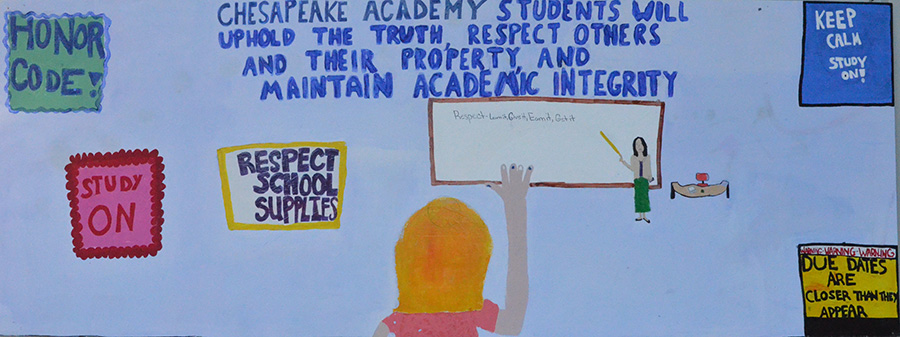 HONOR
CODE!
CHESAPEAKE ACADEMY STUDENTS WILL
UPHOLD THE TRUTH, RESPECT OTHERS
AND THEIR PROPERTY, AND
MAINTAIN ACADEMIC INTEGRITY
KEEP
CALM
STUDY
ON!
Respect-Learn it, Give it, Earn it, Get it
STUDY
ON
RESPECT
SCHOOL
SUPPLIES
WARNING-WARNING
DUE DATES
ARE
CLOSER THAN THEY
APPEAR